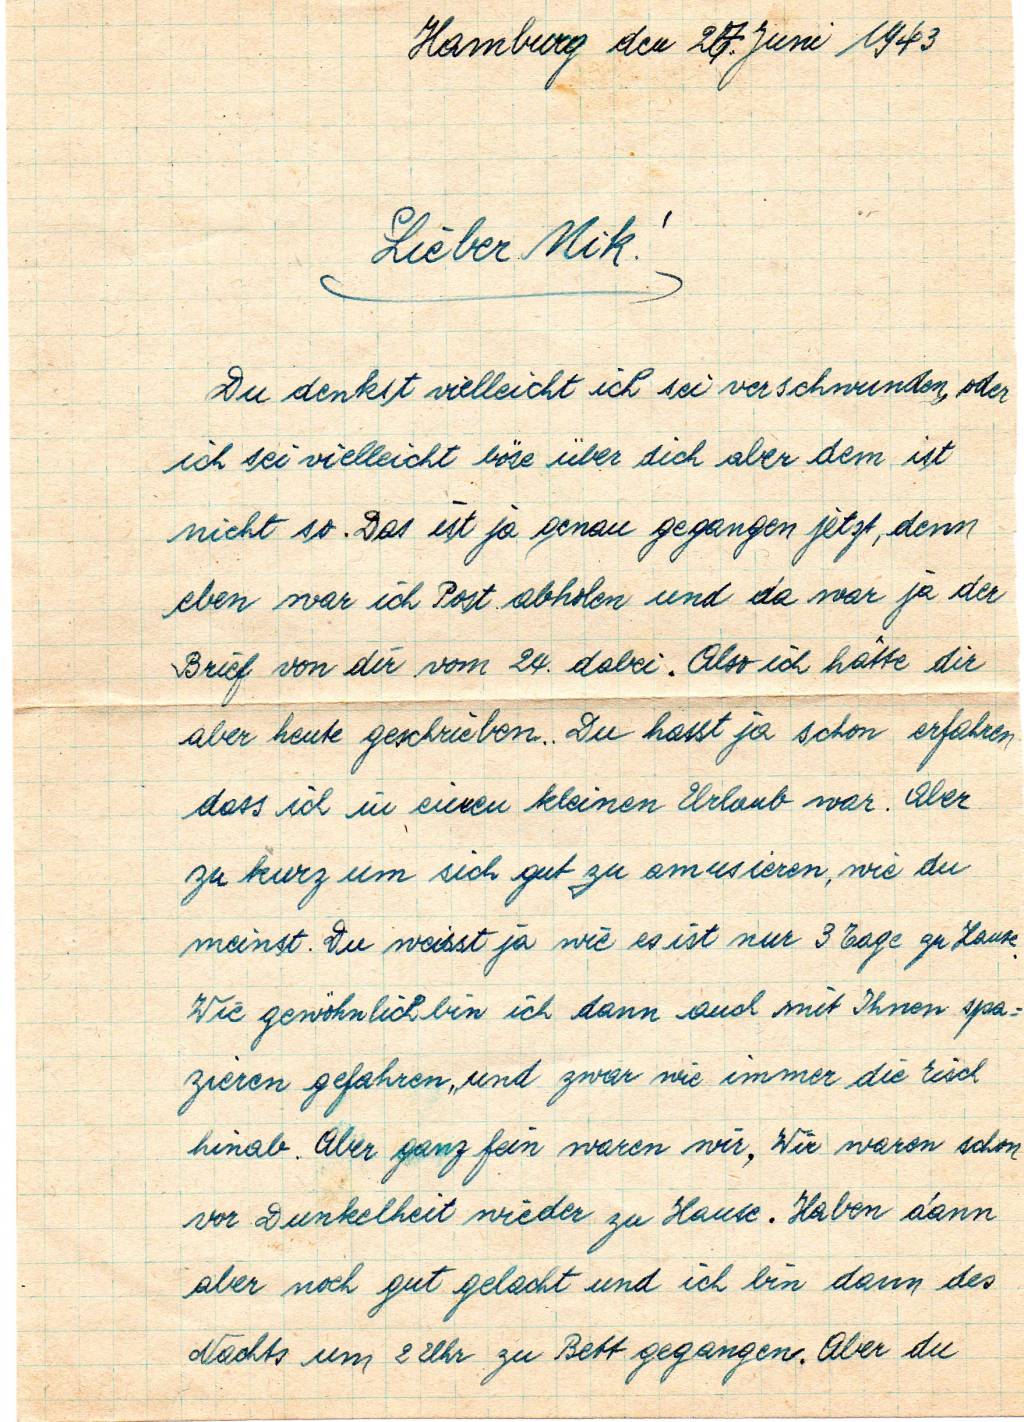 Hamburg den 27. Juni 1943
Lieber Nik!
Du denkst vielleicht ich sei verschwunden, oder
ich sei vielleicht böse über dich aber dem ist
nicht so. Das ist ja genau gegangen jetzt, denn
eben war ich Post abholen und da war ja der
Brief von dir vom 24. dabei. Also ich hätte dir
aber heute geschrieben. Du hasst ja schon erfahren
dass ich in einen kleinen Urlaub war. Aber
zu kurz um sich gut zu amusieren, wie du
meinst. Du weisst ja wie es ist nur 3 Tage zu Hause.
Wie gewöhnlich bin ich dann auch mit Ihnen spa=
zieren gefahren, und zwar wie immer die
hinab. Aber ganz fein waren wir, Wir waren schon
vor Dunkelheit wieder zu Hause. Haben dann
aber noch gut gelacht und ich bin dann des
Nachts um 2 Uhr zu Bett gegangen. Aber du